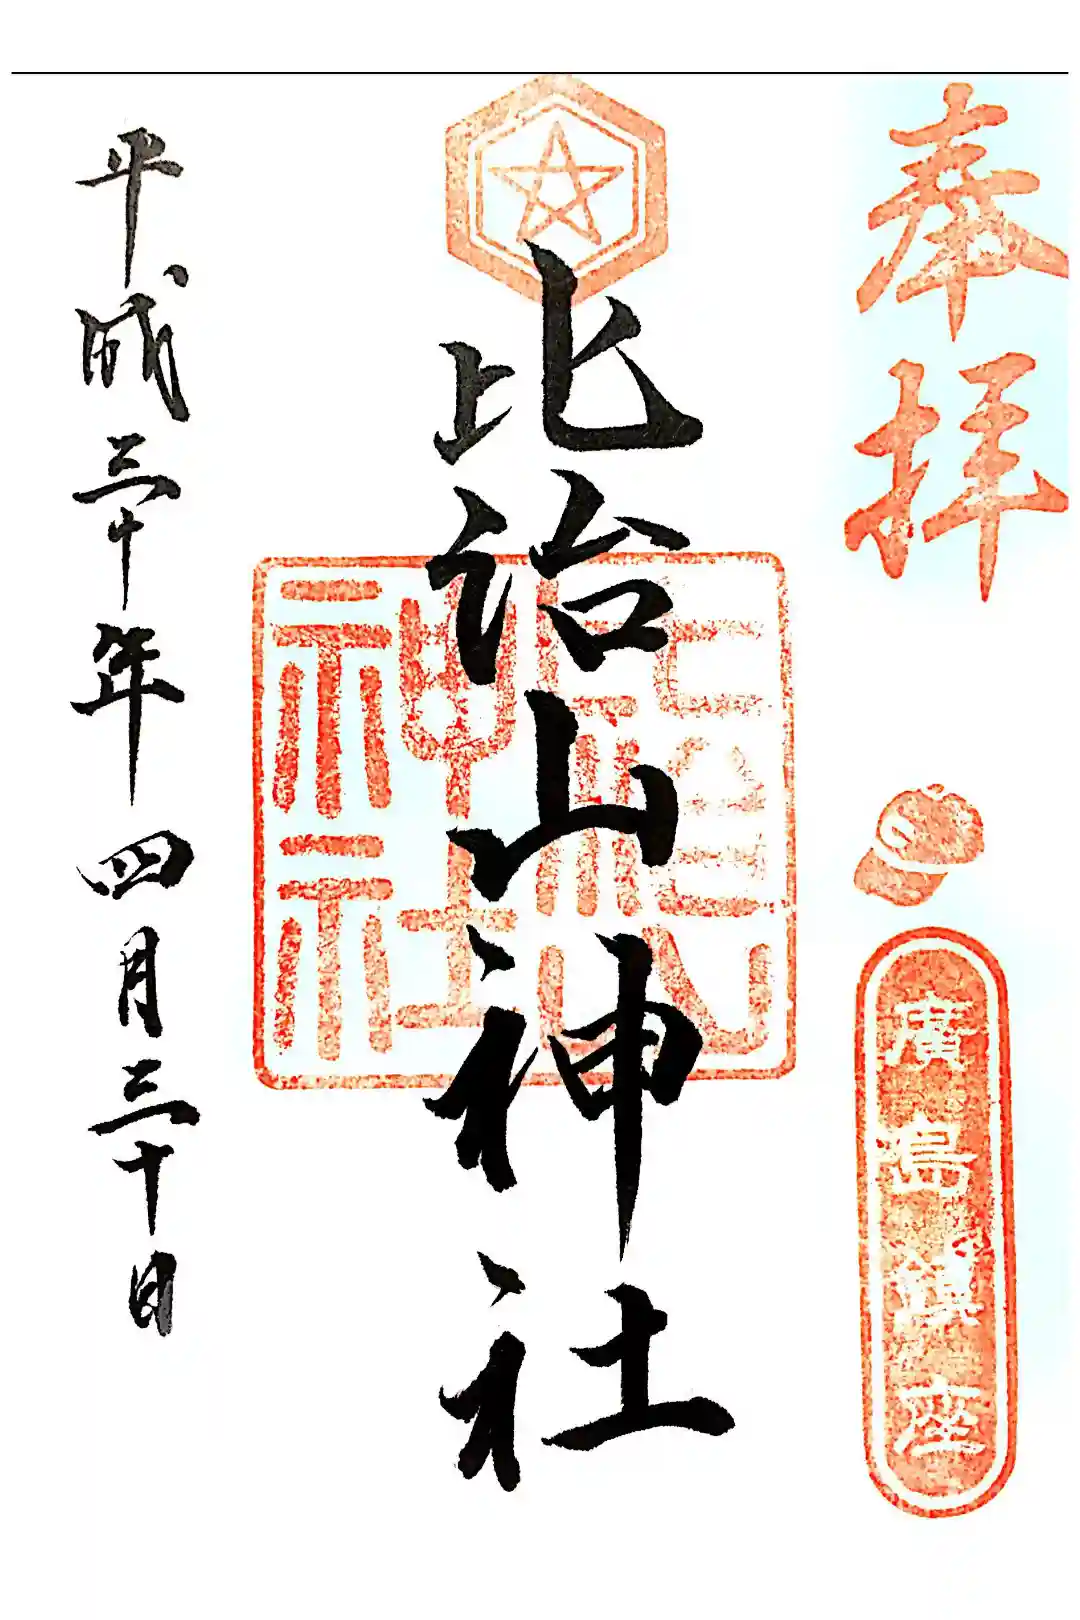 奉拝
廣島鎮座
比治山神社
平成三十年四月三十日